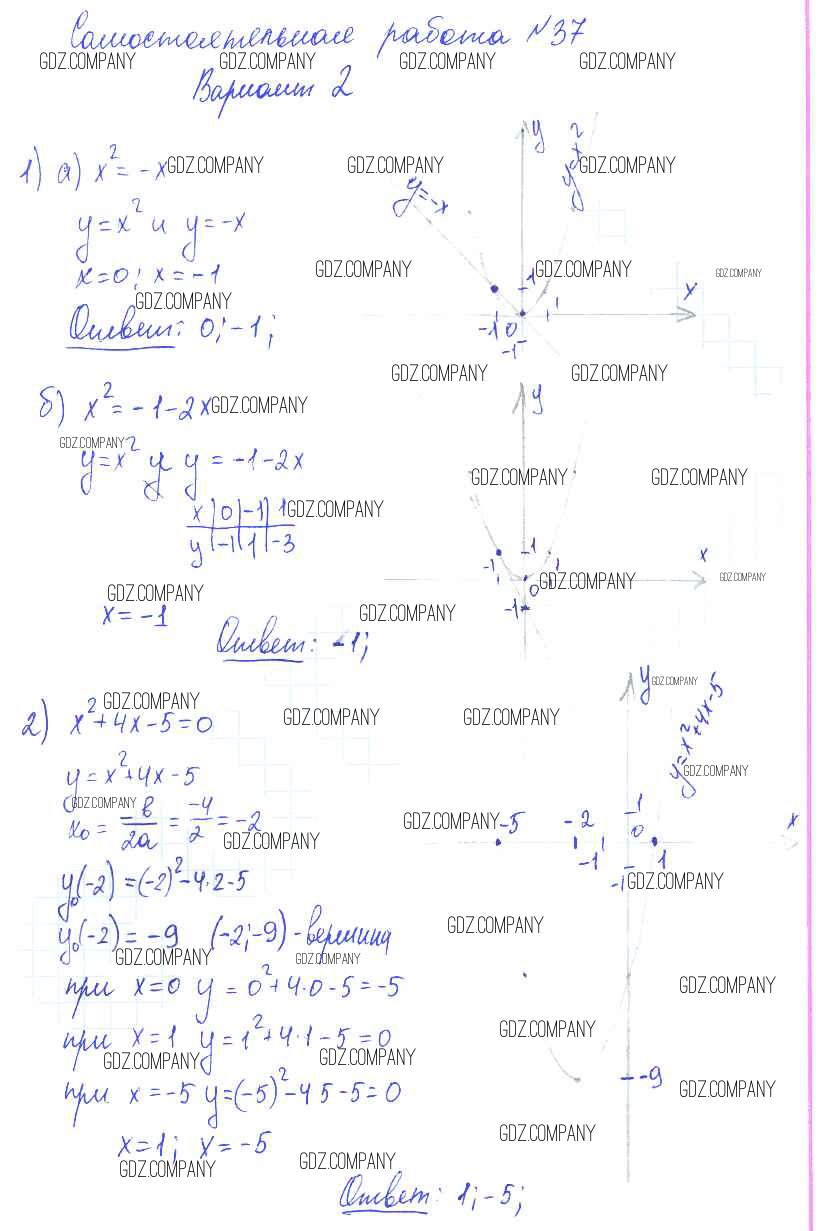 Самостоятельная работа №37
GDZ.COMPANY GDZ.COMPANY GDZ.COMPANY GDZ.COMPANY
Вариант 2
1) а) x² = -x
GDZ.COMPANY GDZ.COMPANY GDZ.COMPANY
y = x² и y = -x
x = 0; x = -1
GDZ.COMPANY GDZ.COMPANY GDZ.COMPANY
GDZ.COMPANY
Ответ: 0; -1;
y
y=x²
y=-x
1
x
-1 0 1
-1
GDZ.COMPANY GDZ.COMPANY
б) x² = -1-2x
GDZ.COMPANY
GDZ.COMPANY
y = x² и y = -1-2x
GDZ.COMPANY GDZ.COMPANY
x | 0 | -1 | 1
GDZ.COMPANY
y | -1 | 1 | -3
GDZ.COMPANY GDZ.COMPANY GDZ.COMPANY
x = -1
GDZ.COMPANY
Ответ: -1;
y
1
x
-1 0 1
-1
GDZ.COMPANY GDZ.COMPANY
2) x² + 4x - 5 = 0
GDZ.COMPANY GDZ.COMPANY GDZ.COMPANY
y = x² + 4x - 5
GDZ.COMPANY GDZ.COMPANY
x₀ = -в/2а = -4/2 = -2
GDZ.COMPANY GDZ.COMPANY
y₀(-2) = (-2)² - 4·2 - 5
GDZ.COMPANY
y₀(-2) = -9 (-2; -9) - вершина
GDZ.COMPANY GDZ.COMPANY GDZ.COMPANY
при x = 0 y = 0² + 4·0 - 5 = -5
GDZ.COMPANY
при x = 1 y = 1² + 4·1 - 5 = 0
GDZ.COMPANY GDZ.COMPANY GDZ.COMPANY
при x = -5 y = (-5)² - 4 5 - 5 = 0
GDZ.COMPANY
x = 1; x = -5
GDZ.COMPANY GDZ.COMPANY
Ответ: 1; -5;
y
y=x²+4x-5
1
-5 -2 0 x
-1 1
-1
GDZ.COMPANY
-9